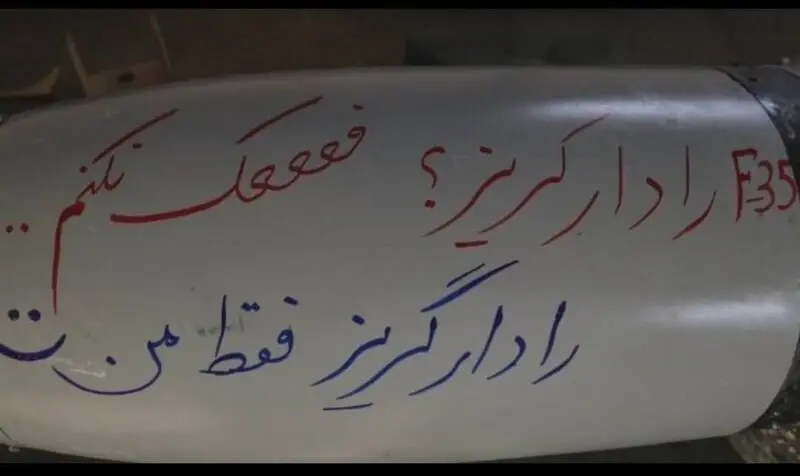 F-35 رادارگریز؟ فففففک نکنم ..
رادارگریز فقط من